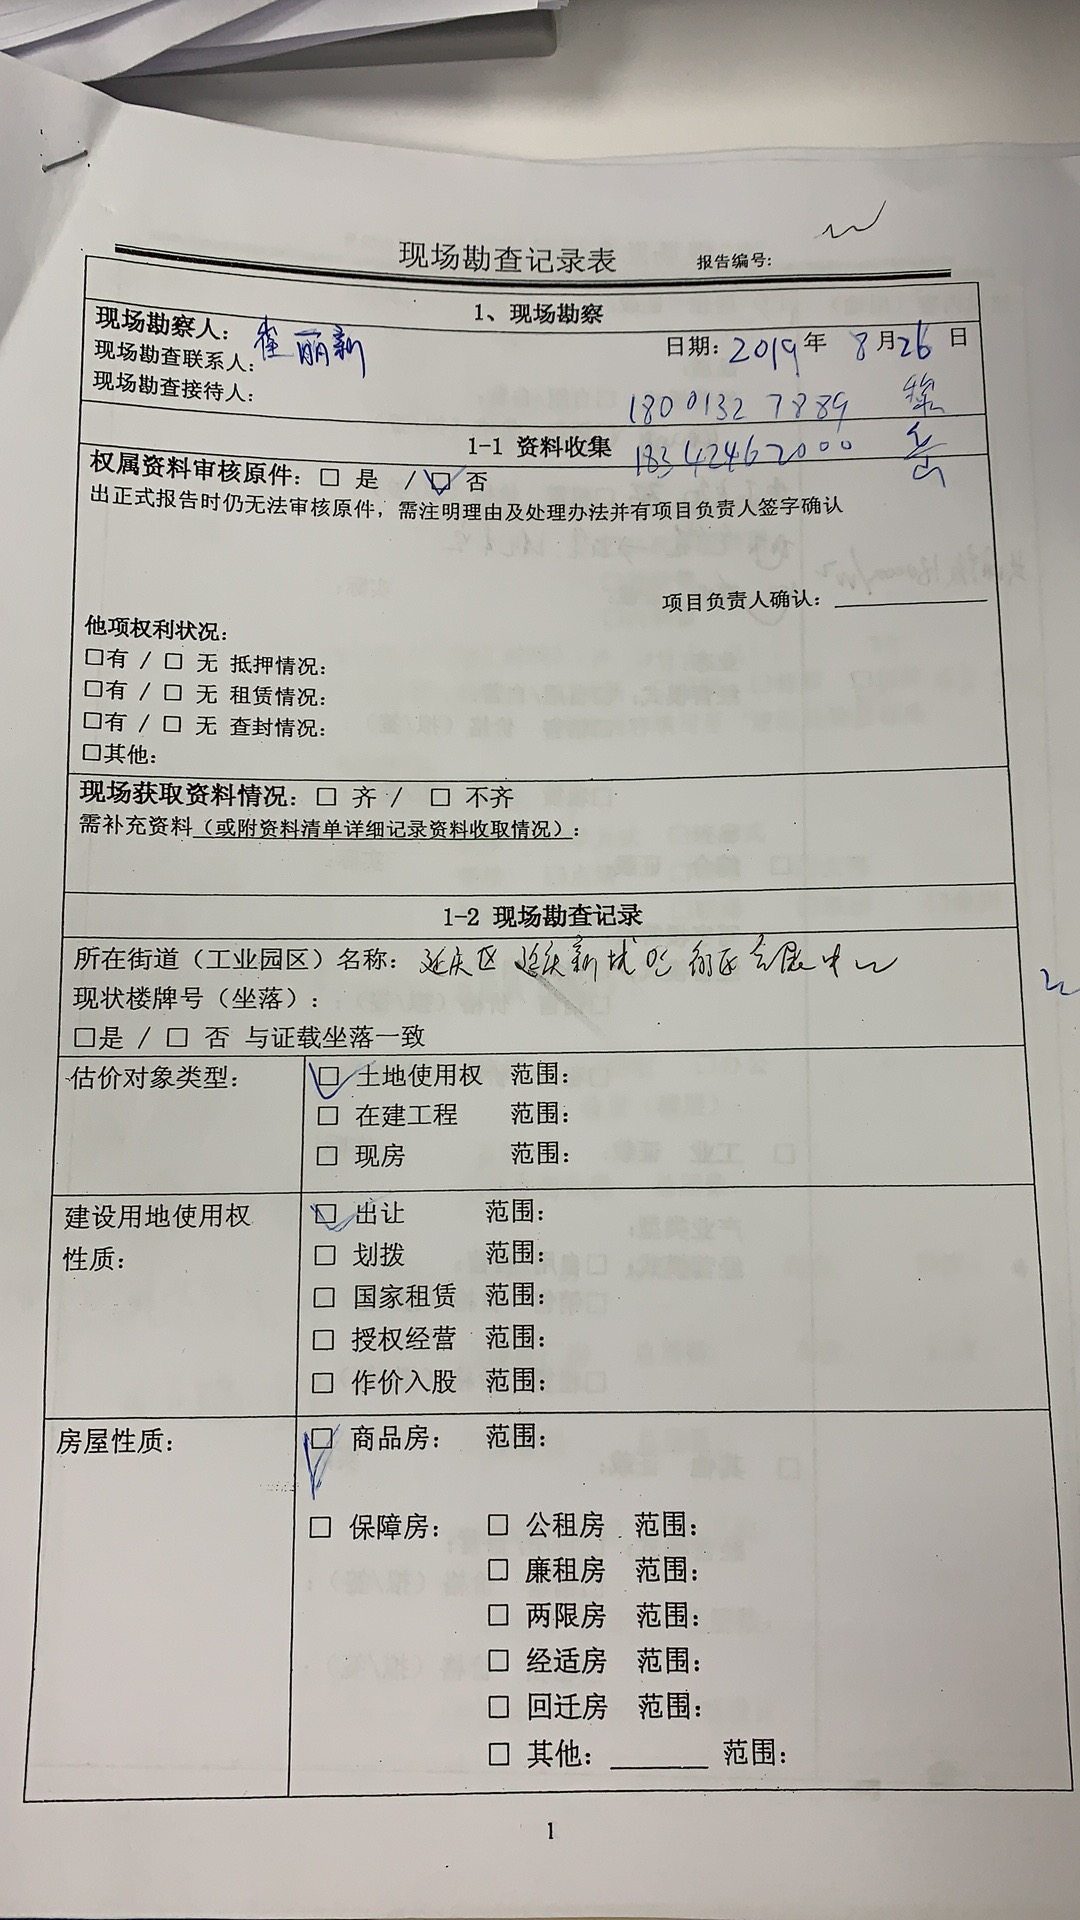 现场勘查记录表 报告编号:
1、现场勘察
现场勘察人: 崔丽新 日期: 2019年 8月26日
现场勘查联系人:
现场勘查接待人:
18001327889 梁
1-1 资料收集 18342462000 岳
权属资料审核原件: □ 是 / ☑ 否
出正式报告时仍无法审核原件, 需注明理由及处理办法并有项目负责人签字确认
项目负责人确认:
他项权利状况:
□有 / □ 无 抵押情况:
□有 / □ 无 租赁情况:
□有 / □ 无 查封情况:
□其他:
现场获取资料情况: □ 齐 / □ 不齐
需补充资料(或附资料清单详细记录资料收取情况):
1-2 现场勘查记录
所在街道(工业园区)名称: 延庆区 延庆新城 街区会展中心
现状楼牌号(坐落):
□是 / □ 否 与证载坐落一致
估价对象类型: ☑ 土地使用权 范围:
□ 在建工程 范围:
□ 现房 范围:
建设用地使用权性质: ☑ 出让 范围:
□ 划拨 范围:
□ 国家租赁 范围:
□ 授权经营 范围:
□ 作价入股 范围:
房屋性质: ☑ 商品房: 范围:
□ 保障房: □ 公租房 范围:
□ 廉租房 范围:
□ 两限房 范围:
□ 经适房 范围:
□ 回迁房 范围:
□ 其他:______ 范围:
1